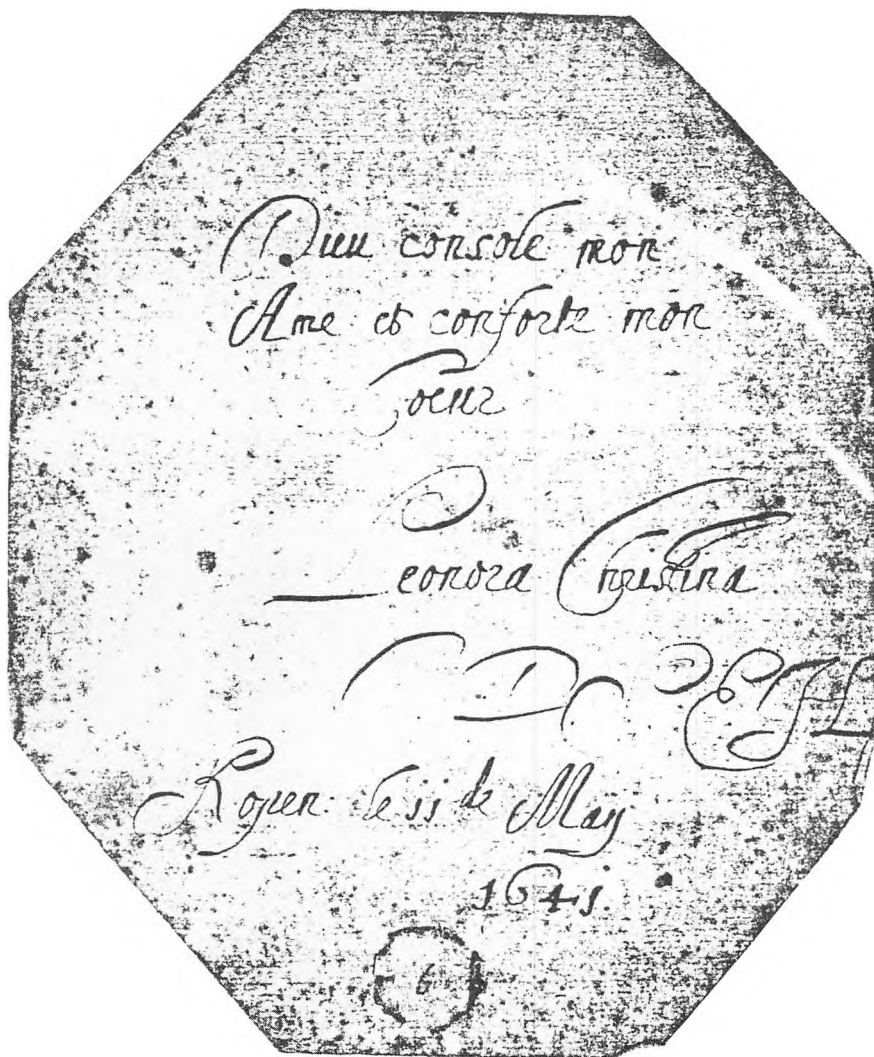 Dieu console mon
Ame et conforte mon
Coeur
Leonora Christina
D E H
le 11 de Maÿ
1641.
6